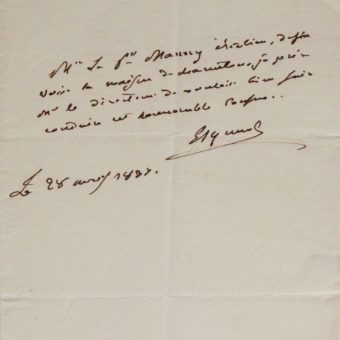 Mr. Le Pce Manny italien, desire
voir la maison de charenton, je prie
Mr le directeur de vouloir bien faire
conduire cet honorable
Esquirol
Le 28 avril 1837.